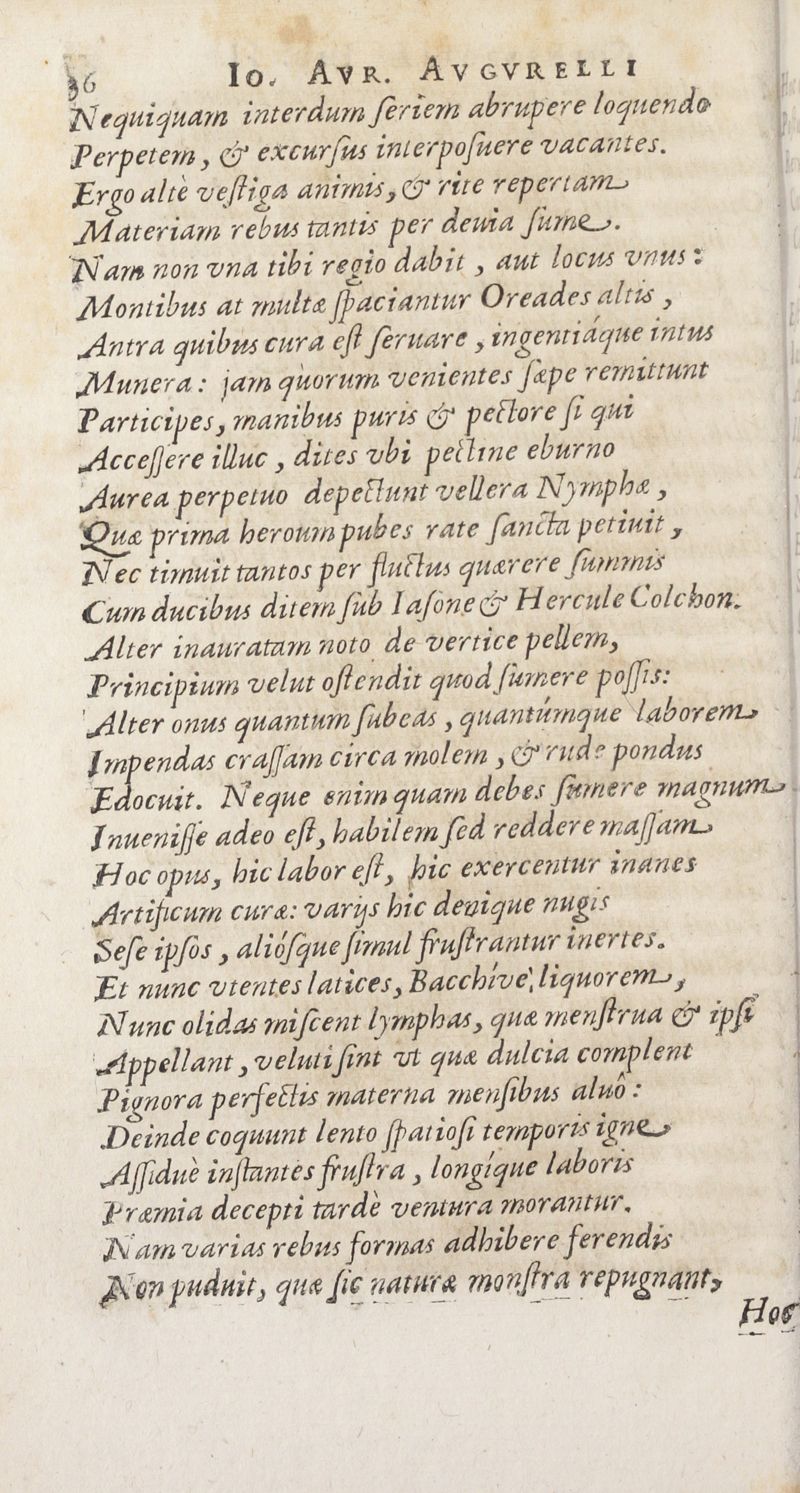 36 Io. AVR. AVGVRELLI
Nequiquam interdum ſeriem abrupere loquendo
Perpetem, & excurſus interpoſuere vacantes.
Ergo altè veſtiga animis, & rite repertam
Materiam rebus tantis per deuia ſume.
Nam non vna tibi regio dabit, aut locus vnus:
Montibus at multæ ſpaciantur Oreades altis,
Antra quibus cura eſt ſeruare, ingentiáque intus
Munera: jam quorum venientes ſæpe remittunt
Participes, manibus puris & pectore ſi qui
Acceſſere illuc, dites vbi pectine eburno
Aurea perpetuo depectunt vellera Nymphæ,
Quæ prima heroum pubes rate ſancta petiuit,
Nec timuit tantos per fluctus quærere ſummis
Cum ducibus ditem ſub Iaſone & Hercule Colchon.
Alter inauratam noto de vertice pellem,
Principium velut oſtendit quod ſumere poſſis:
Alter onus quantum ſubeas, quantúmque laborem
Impendas craſſam circa molem, & rude pondus
Edocuit. Neque enim quam debes ſumere magnum
Inueniſſe adeo eſt, habilem ſed reddere maſſam
Hoc opus, hic labor eſt, hic exercentur inanes
Artificum curæ: varijs hic denique nugis
Seſe ipſos, alióſque ſimul fruſtrantur inertes.
Et nunc vtentes latices, Bacchíve liquorem,
Nunc olidas miſcent lymphas, quæ menſtrua & ipſi
Appellant, veluti ſint vt quæ dulcia complent
Pignora perfectis materna menſibus aluô:
Deinde coquunt lento ſpatioſi temporis igne
Aſſiduè inſtantes fruſtra, longíque laboris
Præmia decepti tardè ventura morantur.
Nam varias rebus formas adhibere ferendis
Non puduit, quæ ſic naturæ monſtra repugnant,
Hoc